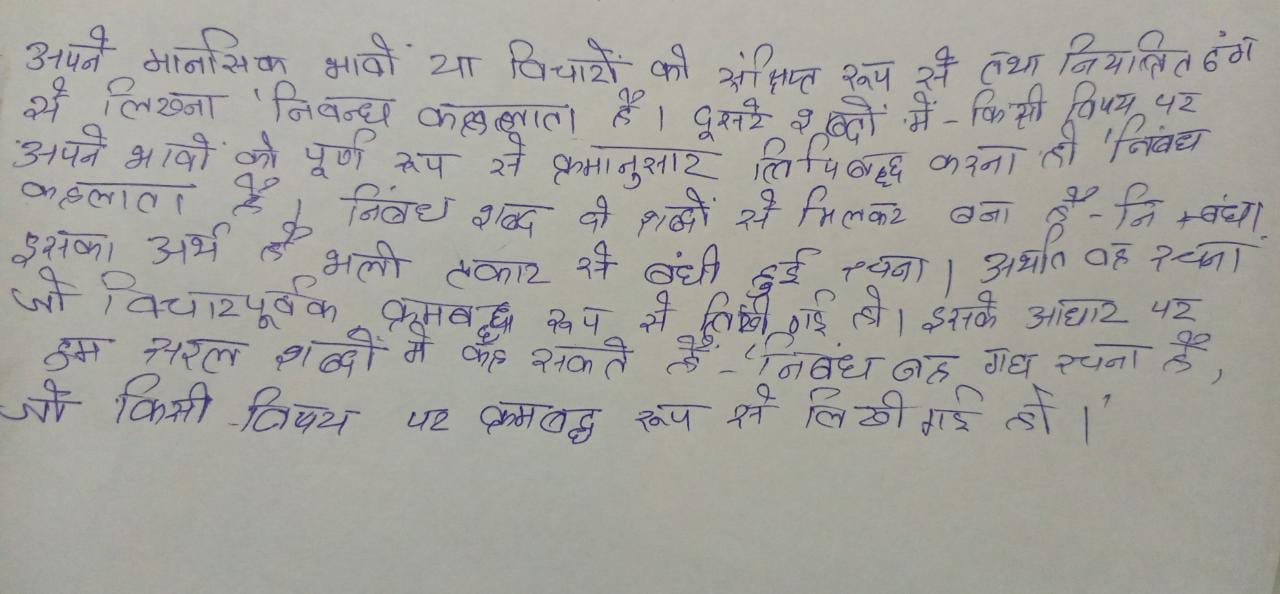 अपने मानसिक भावों या विचारों को संक्षिप्त रूप से तथा नियन्त्रित ढंग
से लिखना 'निबन्ध कहलाता है। दूसरे शब्दों में - किसी विषय पर
अपने भावों को पूर्ण रूप से क्रमानुसार लिपिबद्ध करना ही 'निबंध
कहलाता है। निबंध शब्द दो शब्दों से मिलकर बना है - नि + बंध।
इसका अर्थ है भली प्रकार से बंधी हुई रचना। अर्थात वह रचना
जो विचारपूर्वक क्रमबद्ध रूप से लिखी गई हो। इसके आधार पर
हम सरल शब्दों में कह सकते हैं - 'निबंध वह गद्य रचना है,
जो किसी विषय पर क्रमबद्ध रूप से लिखी गई हो।'